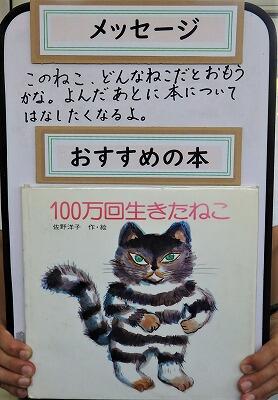 メッセージ
このねこ、どんなねこだとおもう
かな。よんだあとに本について
はなしたくなるよ。
おすすめの本
100万回生きたねこ
佐野洋子 作・絵